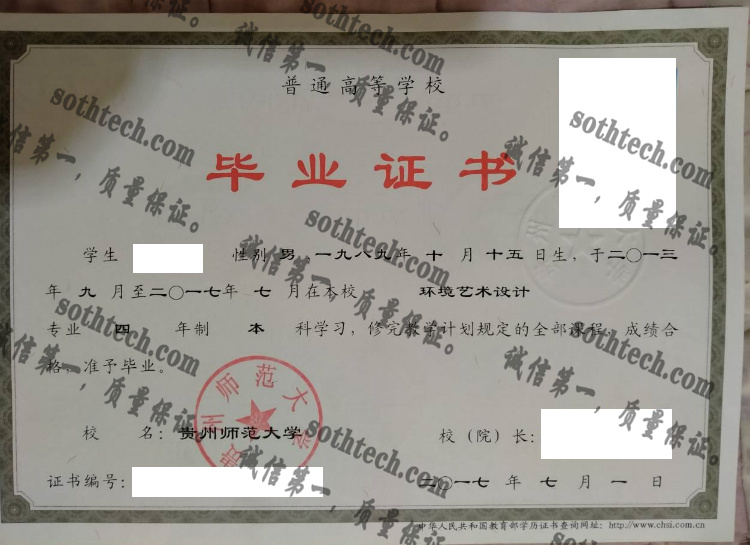 普通高等学校
毕业证书
学生 性别 男,一九八九年 十 月 十五 日生,于二〇一三
年 九 月至二〇一七年 七 月在本校 环境艺术设计
专业 四 年制 本 科学习,修完教学计划规定的全部课程,成绩合
格,准予毕业。
校 名:贵州师范大学
校(院)长:
证书编号:
二〇一七 年 七 月 一 日
中华人民共和国教育部学历证书查询网址:http://www.chsi.com.cn
贵州师范大学
sothtech.com
诚信第一,质量保证。
sothtech.com
诚信第一,质量保证。
sothtech.com
诚信第一,质量保证。
sothtech.com
诚信第一,质量保证。
sothtech.com
诚信第一,质量保证。
sothtech.com
诚信第一,质量保证。
sothtech.com
诚信第一,质量保证。
sothtech.com
诚信第一,质量保证。